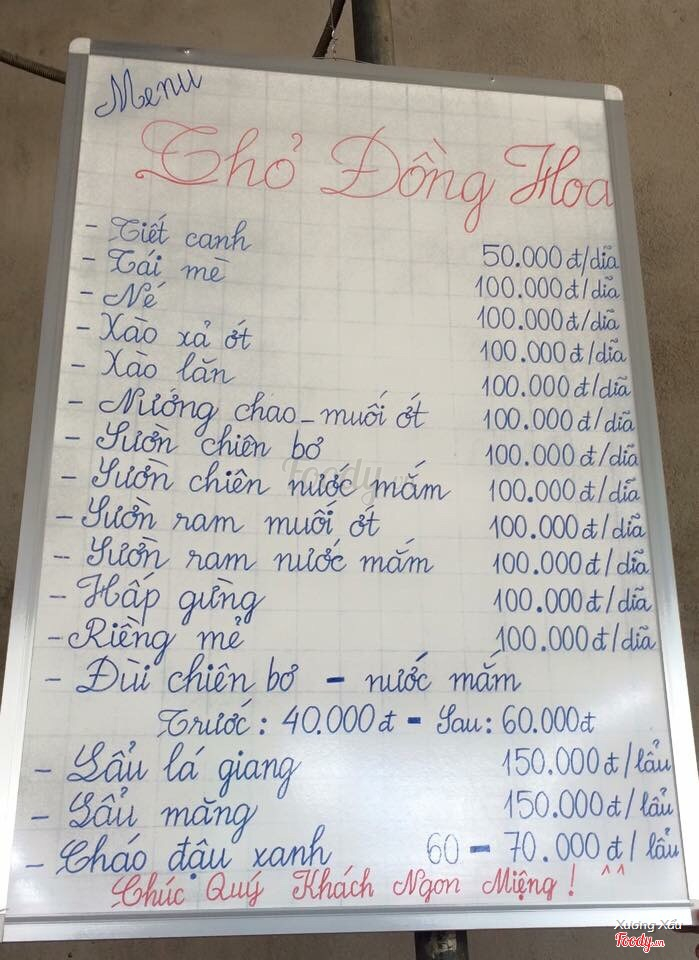 Menu
Thỏ Đồng Hoa
- Tiết canh 50.000đ/dĩa
- Tái mè 100.000đ/dĩa
- Né 100.000đ/dĩa
- Xào xả ớt 100.000đ/dĩa
- Xào lăn 100.000đ/dĩa
- Nướng chao - muối ớt 100.000đ/dĩa
- Sườn chiên bơ 100.000đ/dĩa
- Sườn chiên nước mắm 100.000đ/dĩa
- Sườn ram muối ớt 100.000đ/dĩa
- Sườn ram nước mắm 100.000đ/dĩa
- Hấp gừng 100.000đ/dĩa
- Riềng mẻ 100.000đ/dĩa
- Đùi chiên bơ - nước mắm
Trước: 40.000đ - Sau: 60.000đ
- Lẩu lá giang 150.000đ/lẩu
- Lẩu măng 150.000đ/lẩu
- Cháo đậu xanh 60 - 70.000đ/lẩu
Chúc Quý Khách Ngon Miệng! ^^
Foody.vn
Xương Xẩu
Foody.vn